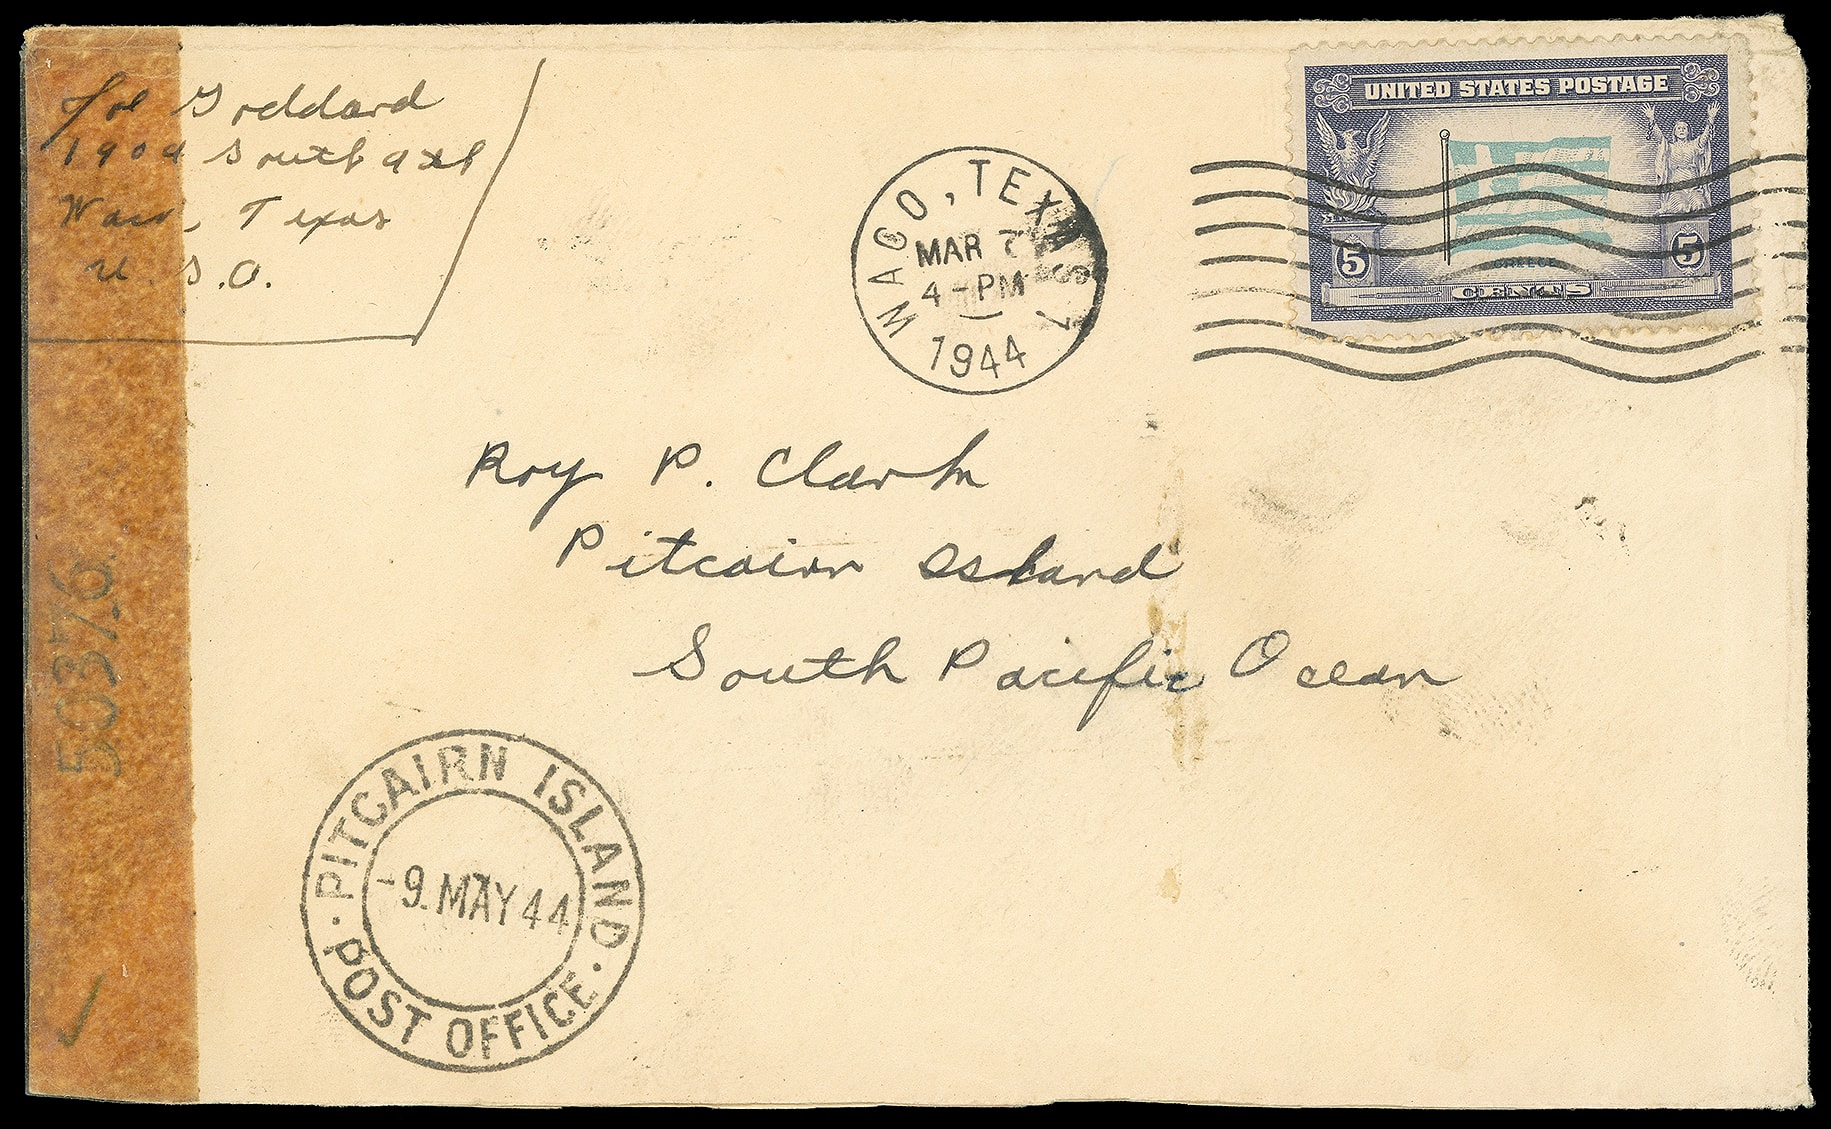 Joe Goddard
1909 South 9th
Waco, Texas
U.S.A.
WACO, TEXAS
MAR 7
4-PM
1944
UNITED STATES POSTAGE
GREECE
5 5
CENTS
Roy P. Clark
Pitcairn Island
South Pacific Ocean
50376
PITCAIRN ISLAND
-9. MAY 44
POST OFFICE